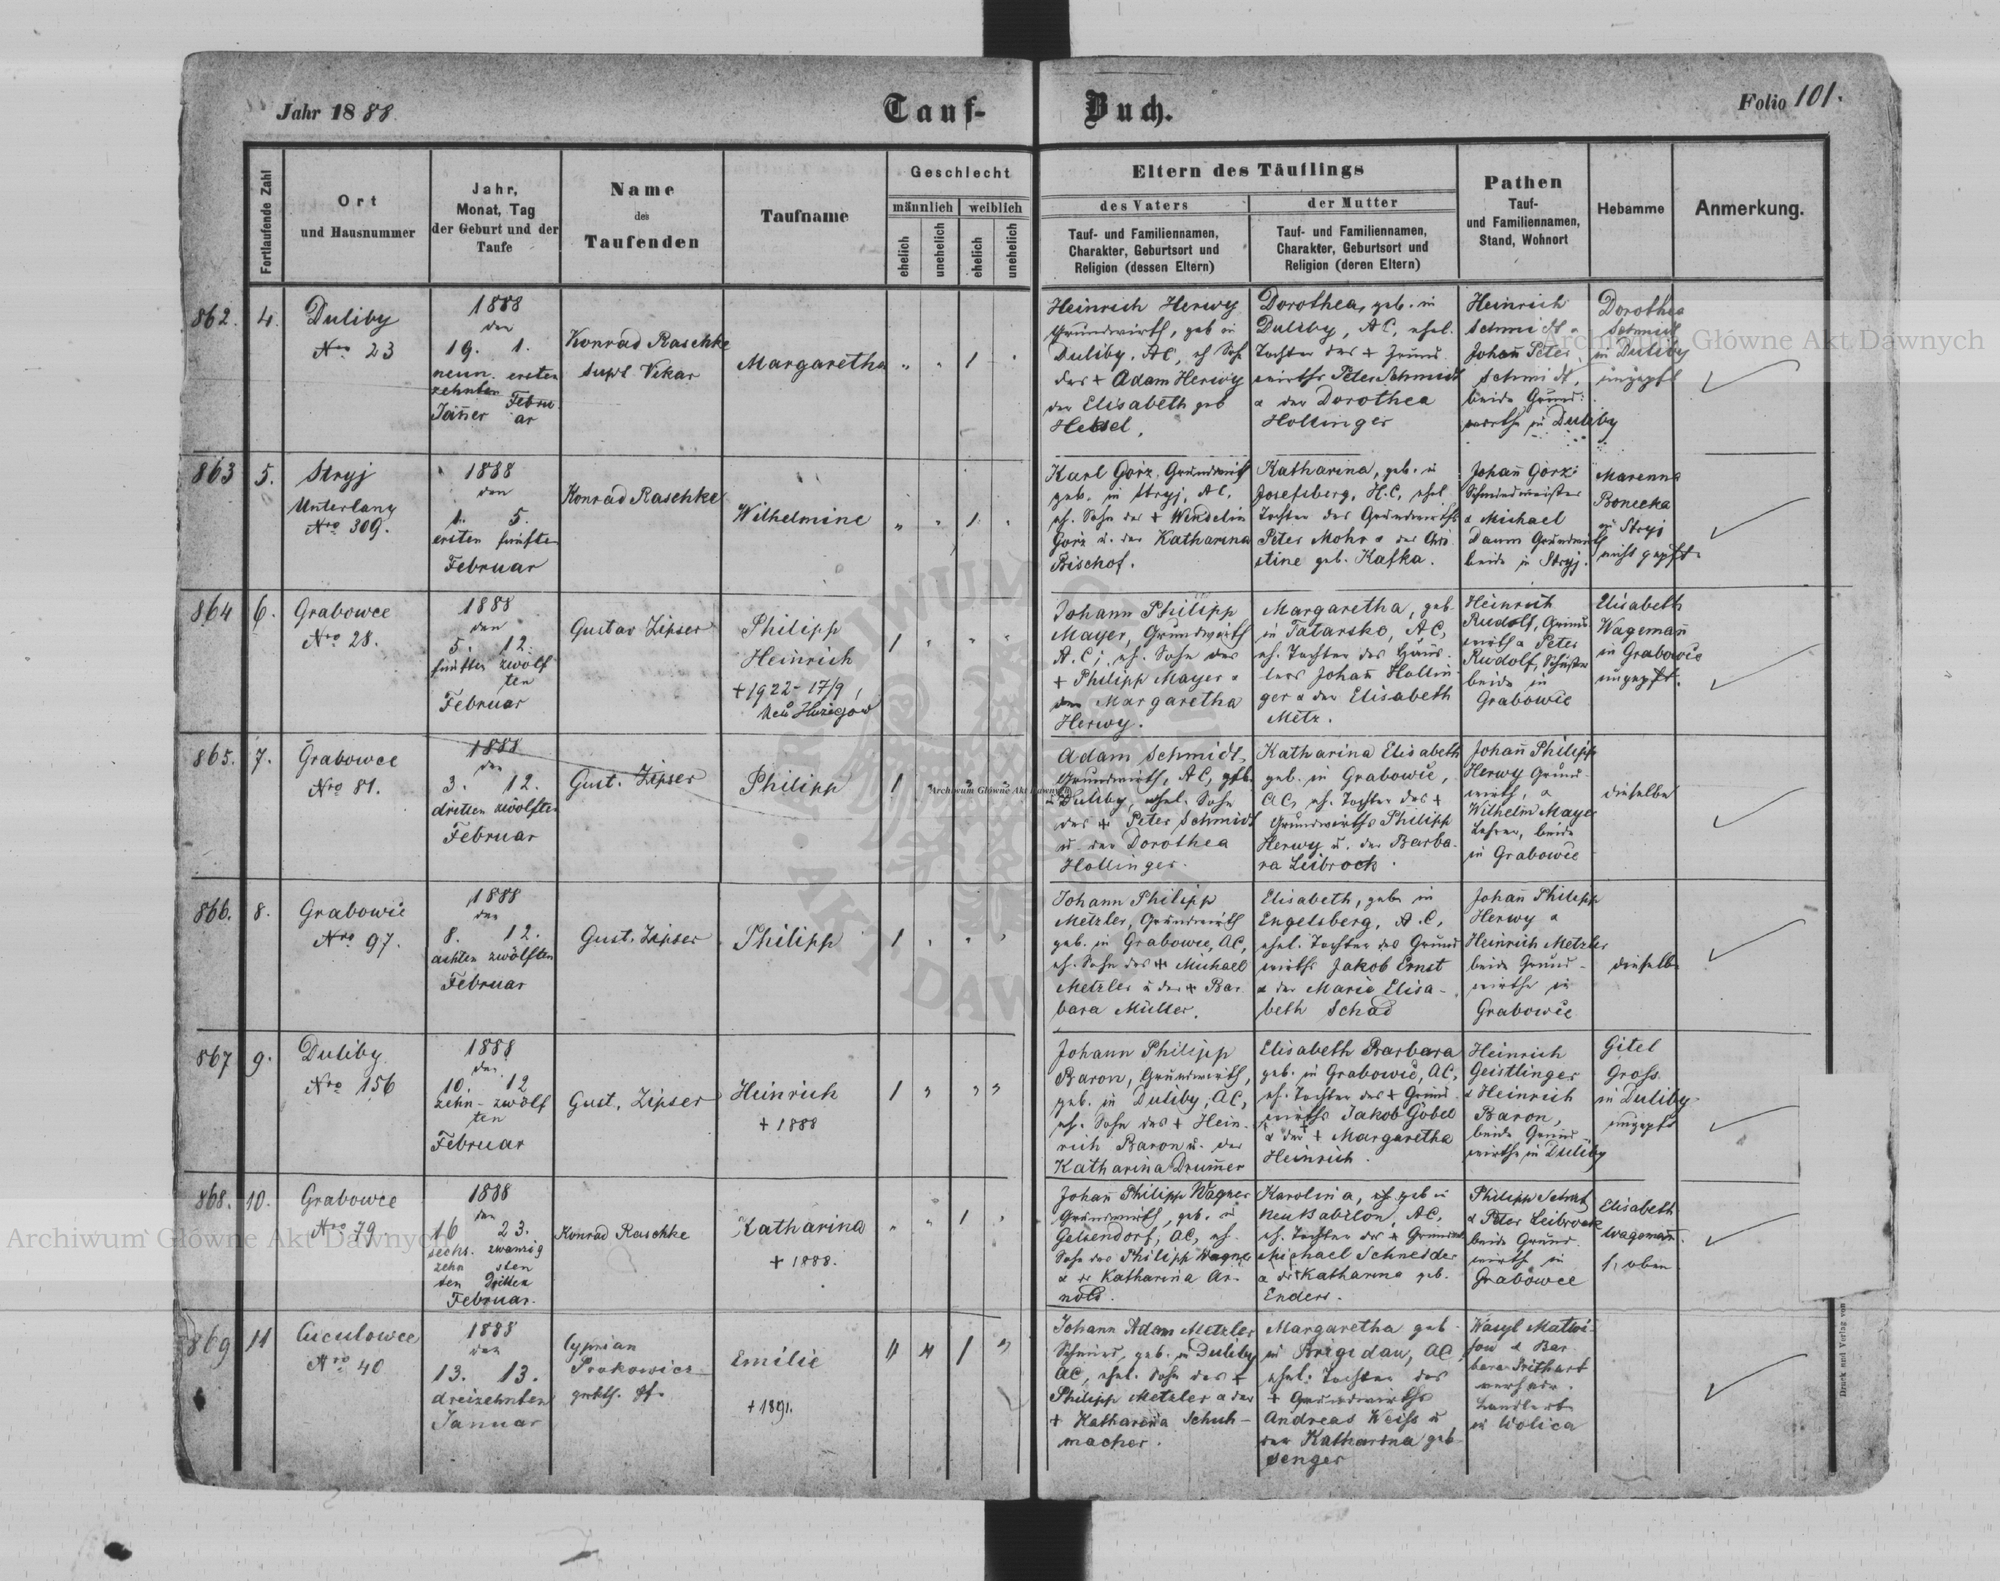 Jahr 1888.
Tauf-
Buch.
Folio 101.
Fortlaufende Zahl
Ort
und Hausnummer
Jahr,
Monat, Tag
der Geburt und der
Taufe
Name
des
Taufenden
Taufname
Geschlecht
männlich
weiblich
ehelich
unehelich
ehelich
unehelich
Eltern des Täuflings
des Vaters
Tauf- und Familiennamen,
Charakter, Geburtsort und
Religion (dessen Eltern)
der Mutter
Tauf- und Familiennamen,
Charakter, Geburtsort und
Religion (deren Eltern)
Pathen
Tauf-
und Familiennamen,
Stand, Wohnort
Hebamme
Anmerkung.
862. 4.
Duliby
Nro 23
1888
den
19. 1.
neun- ersten
zehnten Febru-
Jänner ar
Konrad Raschke
supl. Vikar
Margaretha
" " 1 "
Heinrich Herwy
Grundwirth, geb in
Duliby, AC, eh Sohn
des + Adam Herwy
der Elisabeth geb
Hetsel.
Dorothea, geb. in
Duliby, AC, ehel.
Tochter des + Grund-
wirths Peter Schmidt
& der Dorothea
Hollinger
Heinrich
Schmidt &
Johañ Peter
Schmidt,
beide Grund-
wirthe in Duliby
Dorothea
Schmidt
in Duliby
ungepft
863 5.
Stryj
Unterlany
Nro 309.
1888
den
1. 5.
ersten fünften
Februar
Konrad Raschke
Wilhelmine
" " 1 "
Karl Görz, Grundwirth
geb. in Stryj, AC,
eh. Sohn des + Wendelin
Görz u. der Katharina
Bischof.
Katharina, geb. in
Josefsberg, H.C, ehel
Tochter des Grundwirths
Peter Mohr & der Chri
stine geb. Kafka.
Johañ Görz
Schmiedmeister
& Michael
Daum Grundwirth
beide in Stryj.
Marenna
Bonecka
in Stryj
nicht gepft.
864 6.
Grabowce
Nro 28.
1888
den
5. 12.
fünften zwölf
ten
Februar
Gustav Zipser
Philipp
Heinrich
+ 1922 - 17/9,
1 " " "
Johann Philipp
Mayer, Grundwirth
A.C; eh. Sohn des
+ Philipp Mayer &
der Margaretha
Herwy.
Margaretha, geb.
in Tatarsko, AC,
eh. Tochter des Häus-
lers Johañ Hollin
ger & der Elisabeth
Metz.
Heinrich
Rudolf, Grund
wirth & Peter
Rudolf, Schuster
beide in
Grabowce
Elisabeth
Wagemañ
in Grabowce
ungepft.
865. 7.
Grabowce
Nro 81.
1888
den
3. 12.
dritten zwölften
Februar
Gust. Zipser
Philipp
1 " " "
Adam Schmidt,
Grundwirth, AC, geb.
in Duliby, ehel. Sohn
des + Peter Schmidt
u. der Dorothea
Hollinger.
Katharina Elisabeth
geb. in Grabowce,
AC, eh. Tochter des +
Grundwirths Philipp
Herwy u. der Barba-
ra Leibrock.
Johañ Philipp
Herwy Grund-
wirth, &
Wilhelm Mayer
Lehrer, beide
in Grabowce
dieselbe
866. 8.
Grabowce
Nro 97.
1888
den
8. 12.
achten zwölften
Februar
Gust. Zipser
Philipp
1 " " "
Johann Philipp
Metzler, Grundwirth
geb. in Grabowce, AC,
eh. Sohn des + Michael
Metzler u der + Bar
bara Müller.
Elisabeth, geb. in
Engelsberg, A.C,
ehel. Tochter des Grund
wirths Jakob Ernst
& der Marie Elisa-
beth Schad
Johañ Philipp
Herwy &
Heinrich Metzler
beide Grund-
wirthe in
Grabowce
dieselbe
867 9.
Duliby
Nro 156
1888
den
10. 12
zehn- zwölf
ten
Februar
Gust. Zipser
Heinrich
+ 1888
1 " " "
Johann Philipp
Baron, Grundwirth,
geb. in Duliby, AC,
eh. Sohn des + Hein-
rich Baron u. der
Katharina Drum̃er
Elisabeth Barbara
geb. in Grabowce, AC,
eh. Tochter des + Grund
wirths Jakob Göbel
& der + Margaretha
Heinrich.
Heinrich
Geistlinger
& Heinrich
Baron,
beide Grund
wirthe in Duliby
Gitel
Gross
in Duliby
ungepft
868. 10.
Grabowce
Nro 79.
1888
den
16 23.
sechs- zwanzig
zehn sten
ten Dritten
Februar.
Konrad Raschke
Katharina
+ 1888.
" " 1 "
Johañ Philipp Wagner
Grundwirth, geb. in
Gelsendorf, AC, eh.
Sohn des Philipp Wagner
& der Katharina Ar-
nold.
Karolina, geb in
Neu Babilon, AC,
eh. Tochter des + Grundwirths
Michael Schneider
& der + Katharina geb.
Enders.
Philipp Schat
& Peter Leibrock
beide Grund-
wirthe in
Grabowce
Elisabeth
Wagemañ.
s. oben
869 11
Cuculowce
Nro 40
1888
den
13. 13.
dreizehnten
Januar
Cyprian
Prokowicz
Emilie
+ 1891.
" " 1 "
Johann Adam Metzler
Schmied, geb. in Duliby
AC, ehel. Sohn des +
Philipp Metzler & der
+ Katharina Schuh-
macher.
Margaretha geb-
in Brigidau, AC
ehel. Tochter des
+ Grundwirths
Andreas Weiss u
der Katharina geb
Senger
Wasyl Matwi-
jow & Bar
bara Prithart
in Wolica
Druck und Verlag von
Archiwum Główne Akt Dawnych
Archiwum Główne Akt Dawnych
Archiwum Główne Akt Dawnych
ARCHIWUM
AKT DAWN